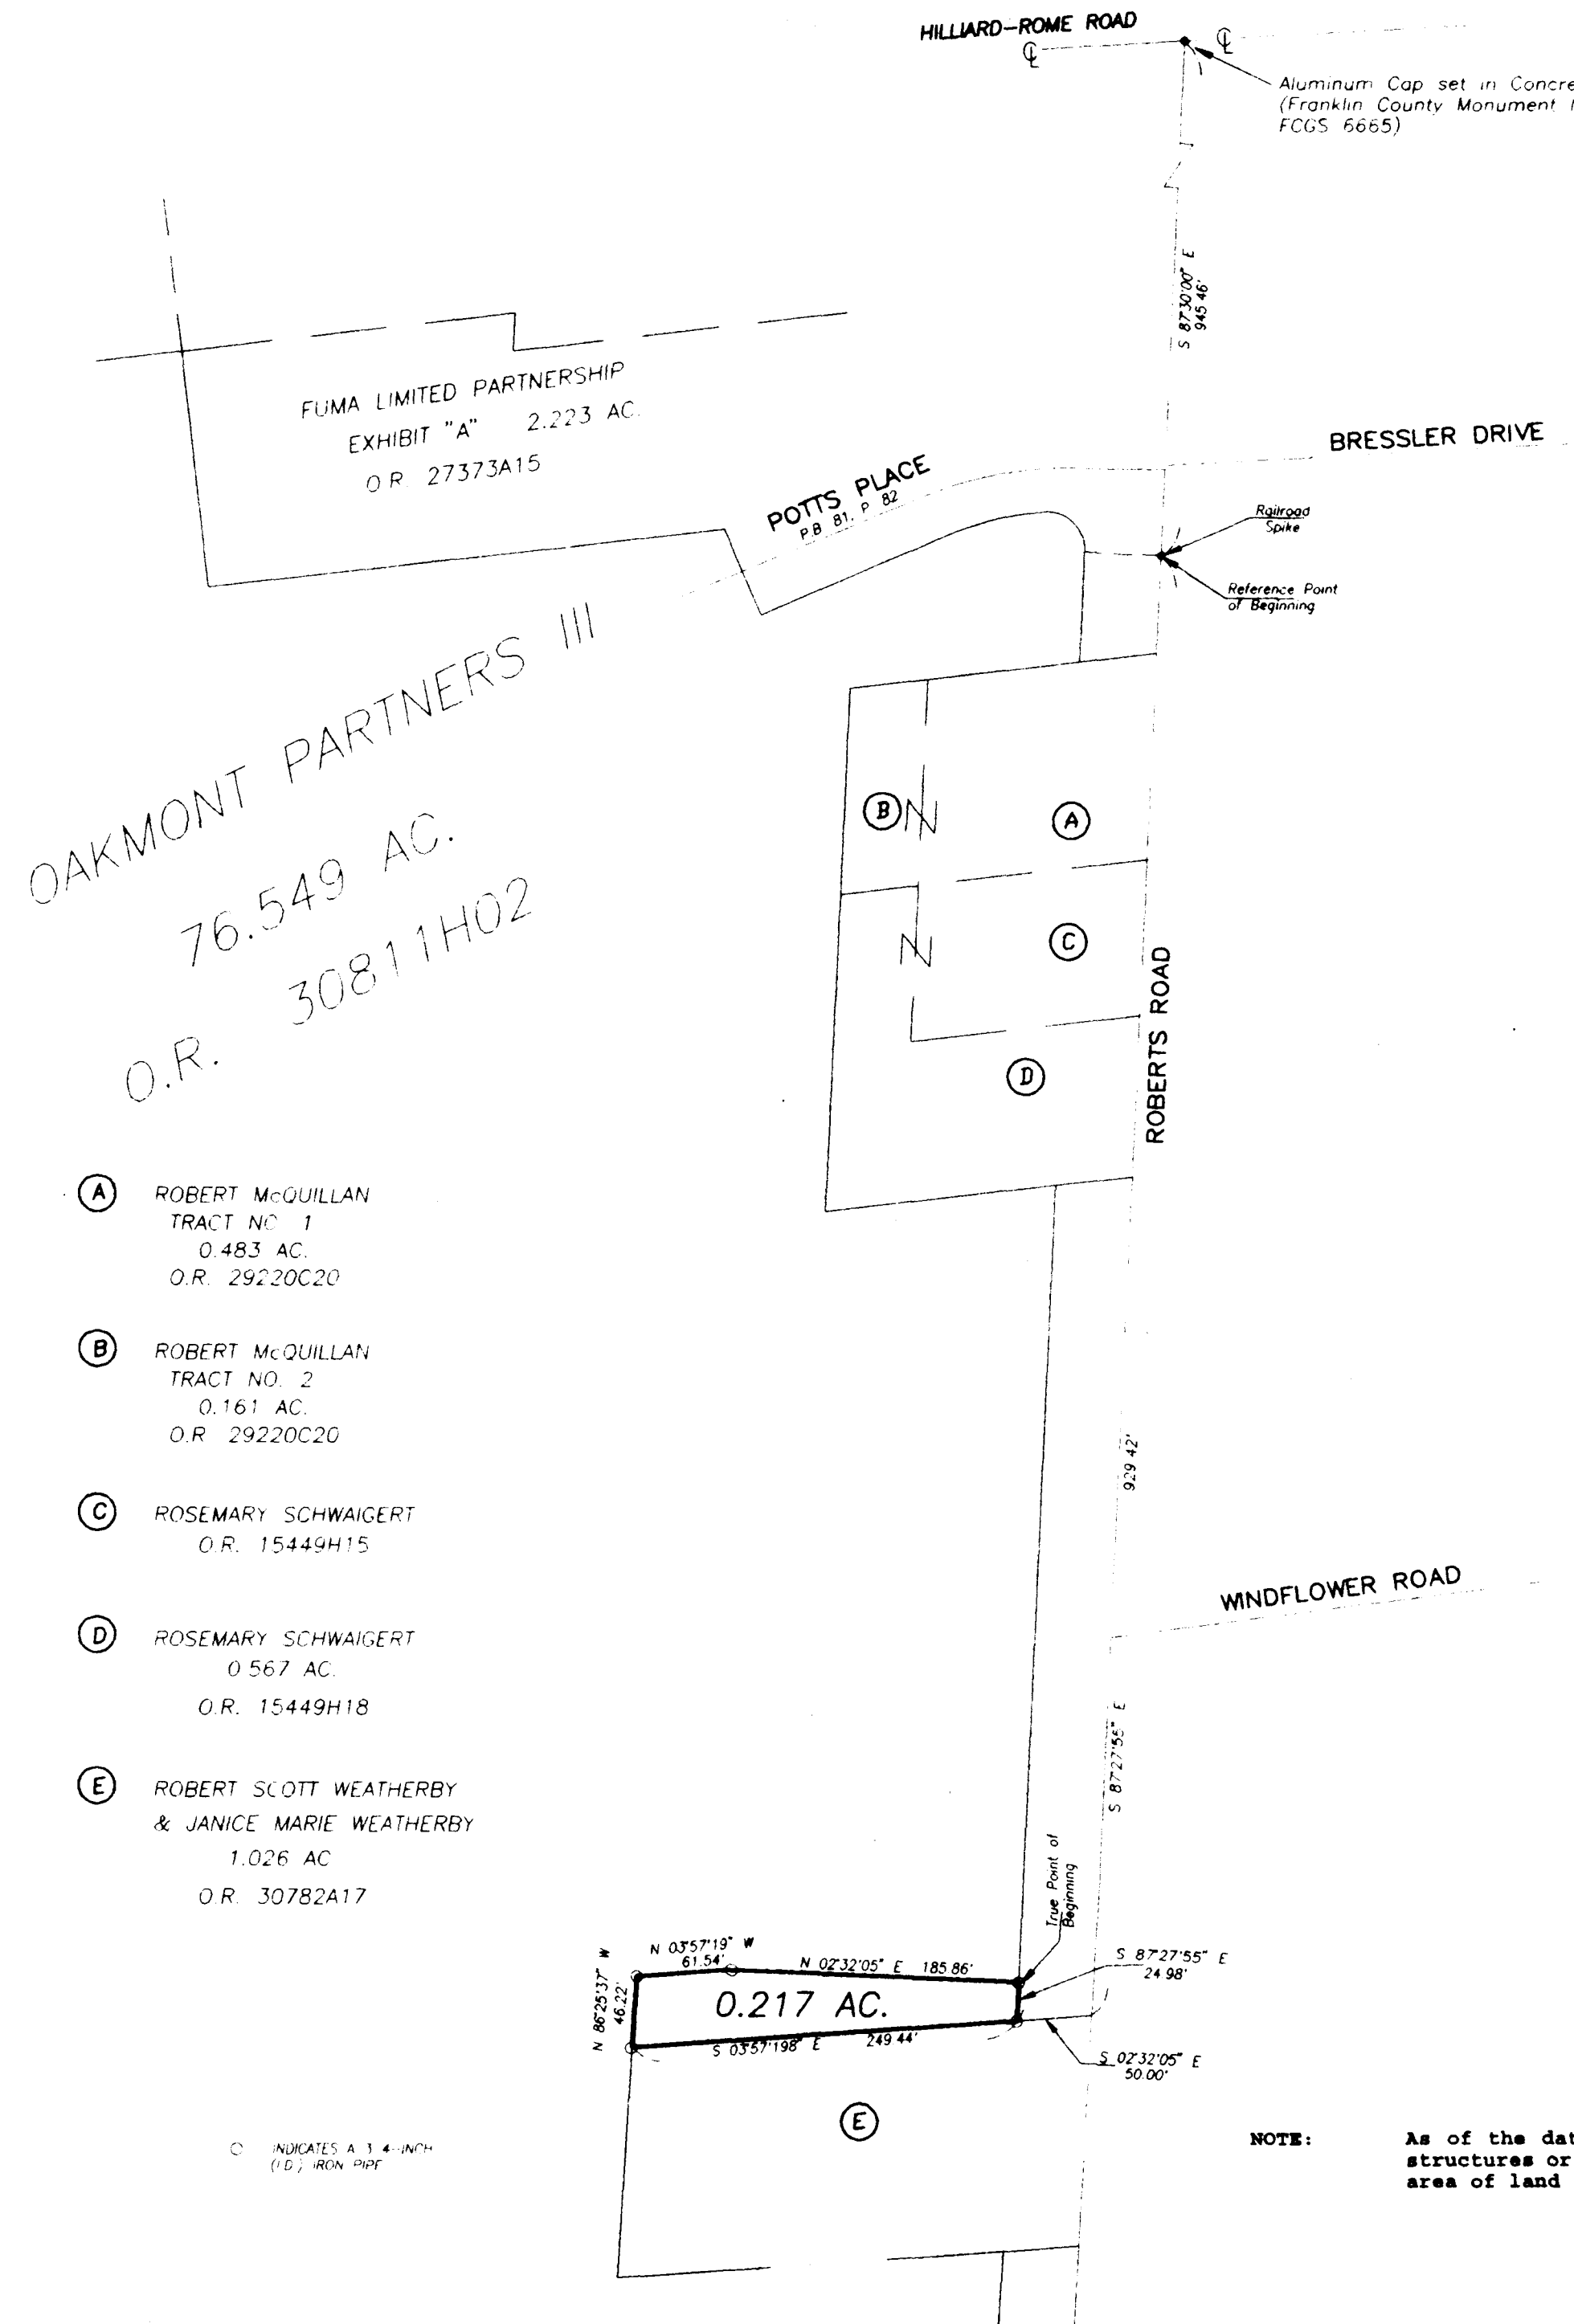 HILLIARD-ROME ROAD
Aluminum Cap set in
(Franklin County Monument
FCGS 6665)
S 87°30'00" E
945.46'
FUMA LIMITED PARTNERSHIP
EXHIBIT "A" 2.223 AC.
O.R. 27373A15
BRESSLER DRIVE
POTTS PLACE
P.B. 81, P. 82
Railroad
Spike
Reference Point
of Beginning
OAKMONT PARTNERS III
76.549 AC.
O.R. 30811H02
B
A
C
D
ROBERTS ROAD
A ROBERT McQUILLAN
TRACT NO 1
0.483 AC.
O.R. 29220C20
B ROBERT McQUILLAN
TRACT NO. 2
0.161 AC.
O.R 29220C20
C ROSEMARY SCHWAIGERT
O.R. 15449H15
D ROSEMARY SCHWAIGERT
0.567 AC.
O.R. 15449H18
E ROBERT SCOTT WEATHERBY
& JANICE MARIE WEATHERBY
1.026 AC
O.R. 30782A17
929.42'
WINDFLOWER ROAD
S 87°27'55" E
True Point of
Beginning
N 03°57'19" W
61.54'
N 02°32'05" E 185.86'
S 87°27'55" E
24.98'
N 86°25'37" W
46.22'
0.217 AC.
S 03°57'198" E 249.44'
S 02°32'05" E
50.00'
E
INDICATES A 3 4-INCH
(I.D.) IRON PIPE
NOTE: As of the
structures or
area of land